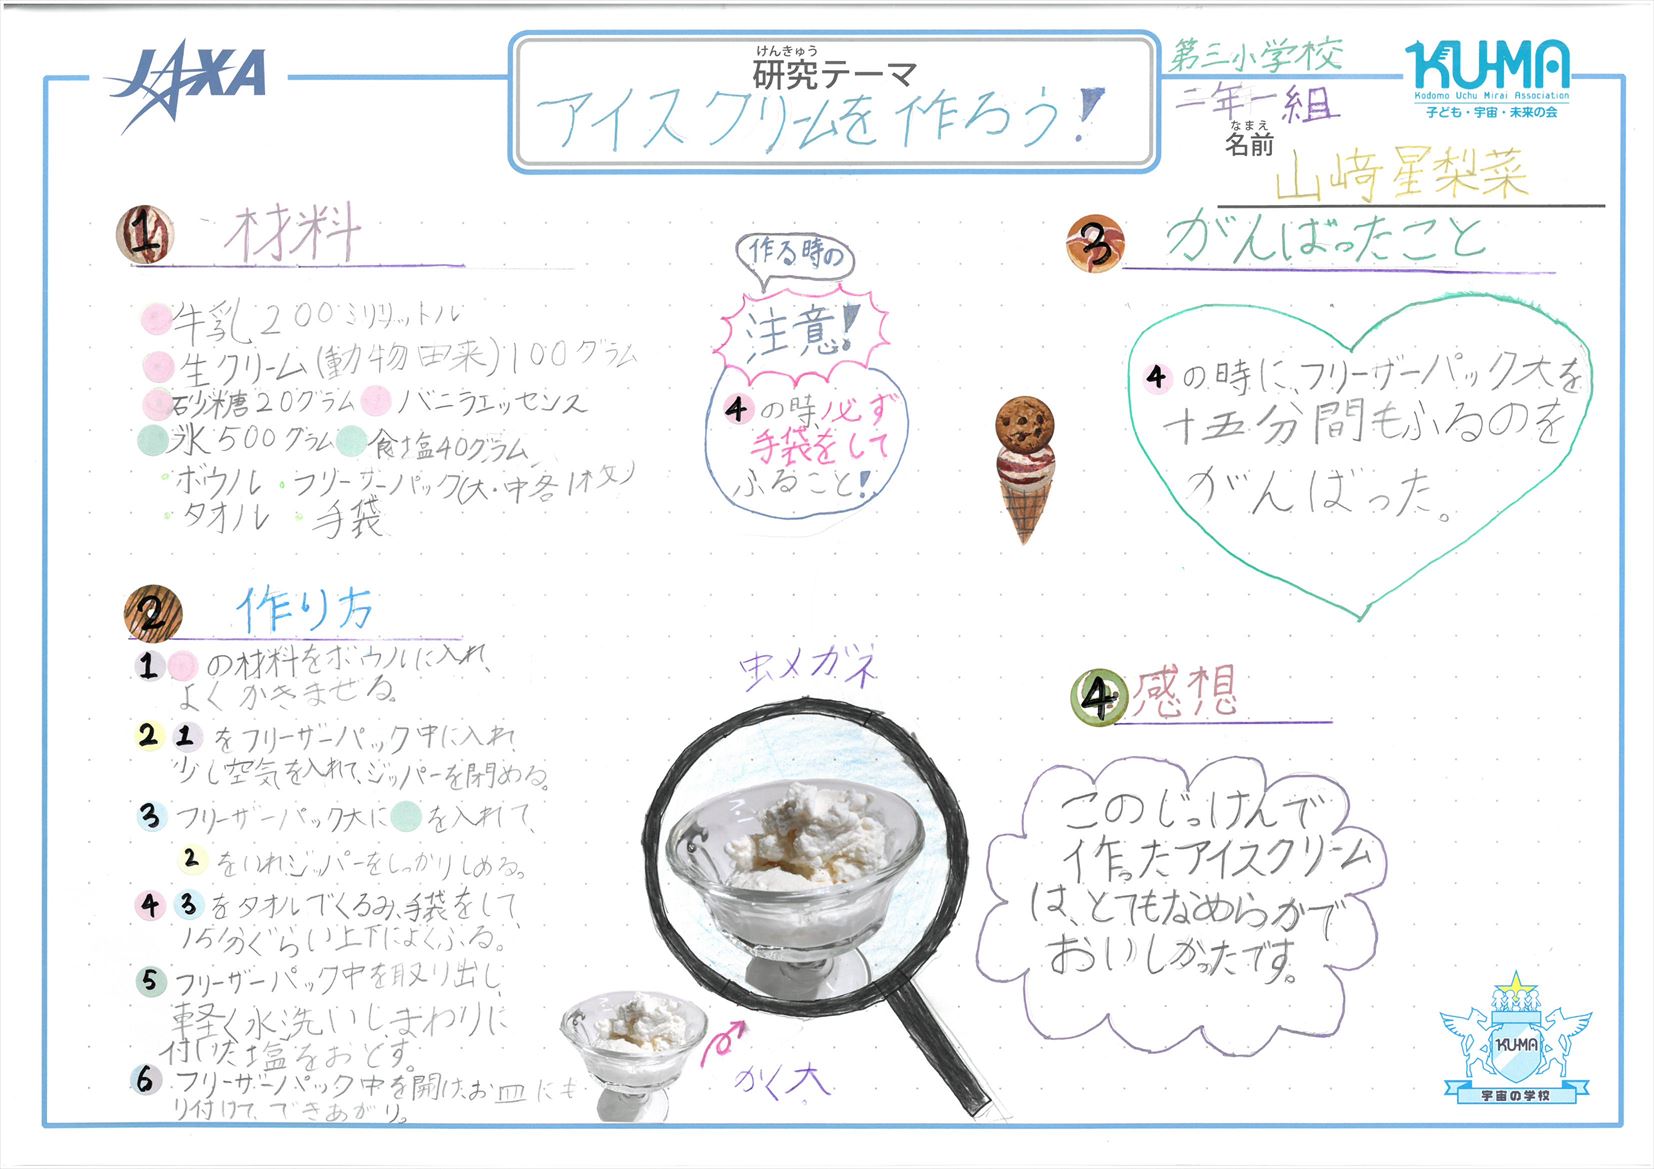 JAXA
けんきゅう
研究テーマ
アイスクリームを作ろう!
第三小学校
二年一組
なまえ
名前
山﨑星梨菜
KU-MA
Kodomo Uchu Mirai Association
子ども・宇宙・未来の会
1 材料
牛乳200ミリリットル
生クリーム(動物由来)100グラム
砂糖20グラム バニラエッセンス
氷500グラム 食塩40グラム
・ボウル ・フリーザーパック(大・中各1枚)
・タオル ・手袋
作る時の
注意!
4の時、必ず
手袋をして
ふること!
2 作り方
1 の材料をボウルに入れ、
よくかきまぜる。
2 1をフリーザーパック中に入れ、
少し空気を入れて、ジッパーを閉める。
3 フリーザーパック大に を入れて、
2をいれジッパーをしっかりしめる。
4 3をタオルでくるみ、手袋をして、
15分ぐらい上下によくふる。
5 フリーザーパック中を取り出し、
軽く水洗いし、まわりに
付いた塩をおとす。
6 フリーザーパック中を開け、お皿にも
り付けて、できあがり。
虫メガネ
かく大
3 がんばったこと
4の時に、フリーザーパック大を
十五分間もふるのを
がんばった。
4 感想
このじっけんで
作ったアイスクリーム
は、とてもなめらかで
おいしかったです。
KUMA
宇宙の学校